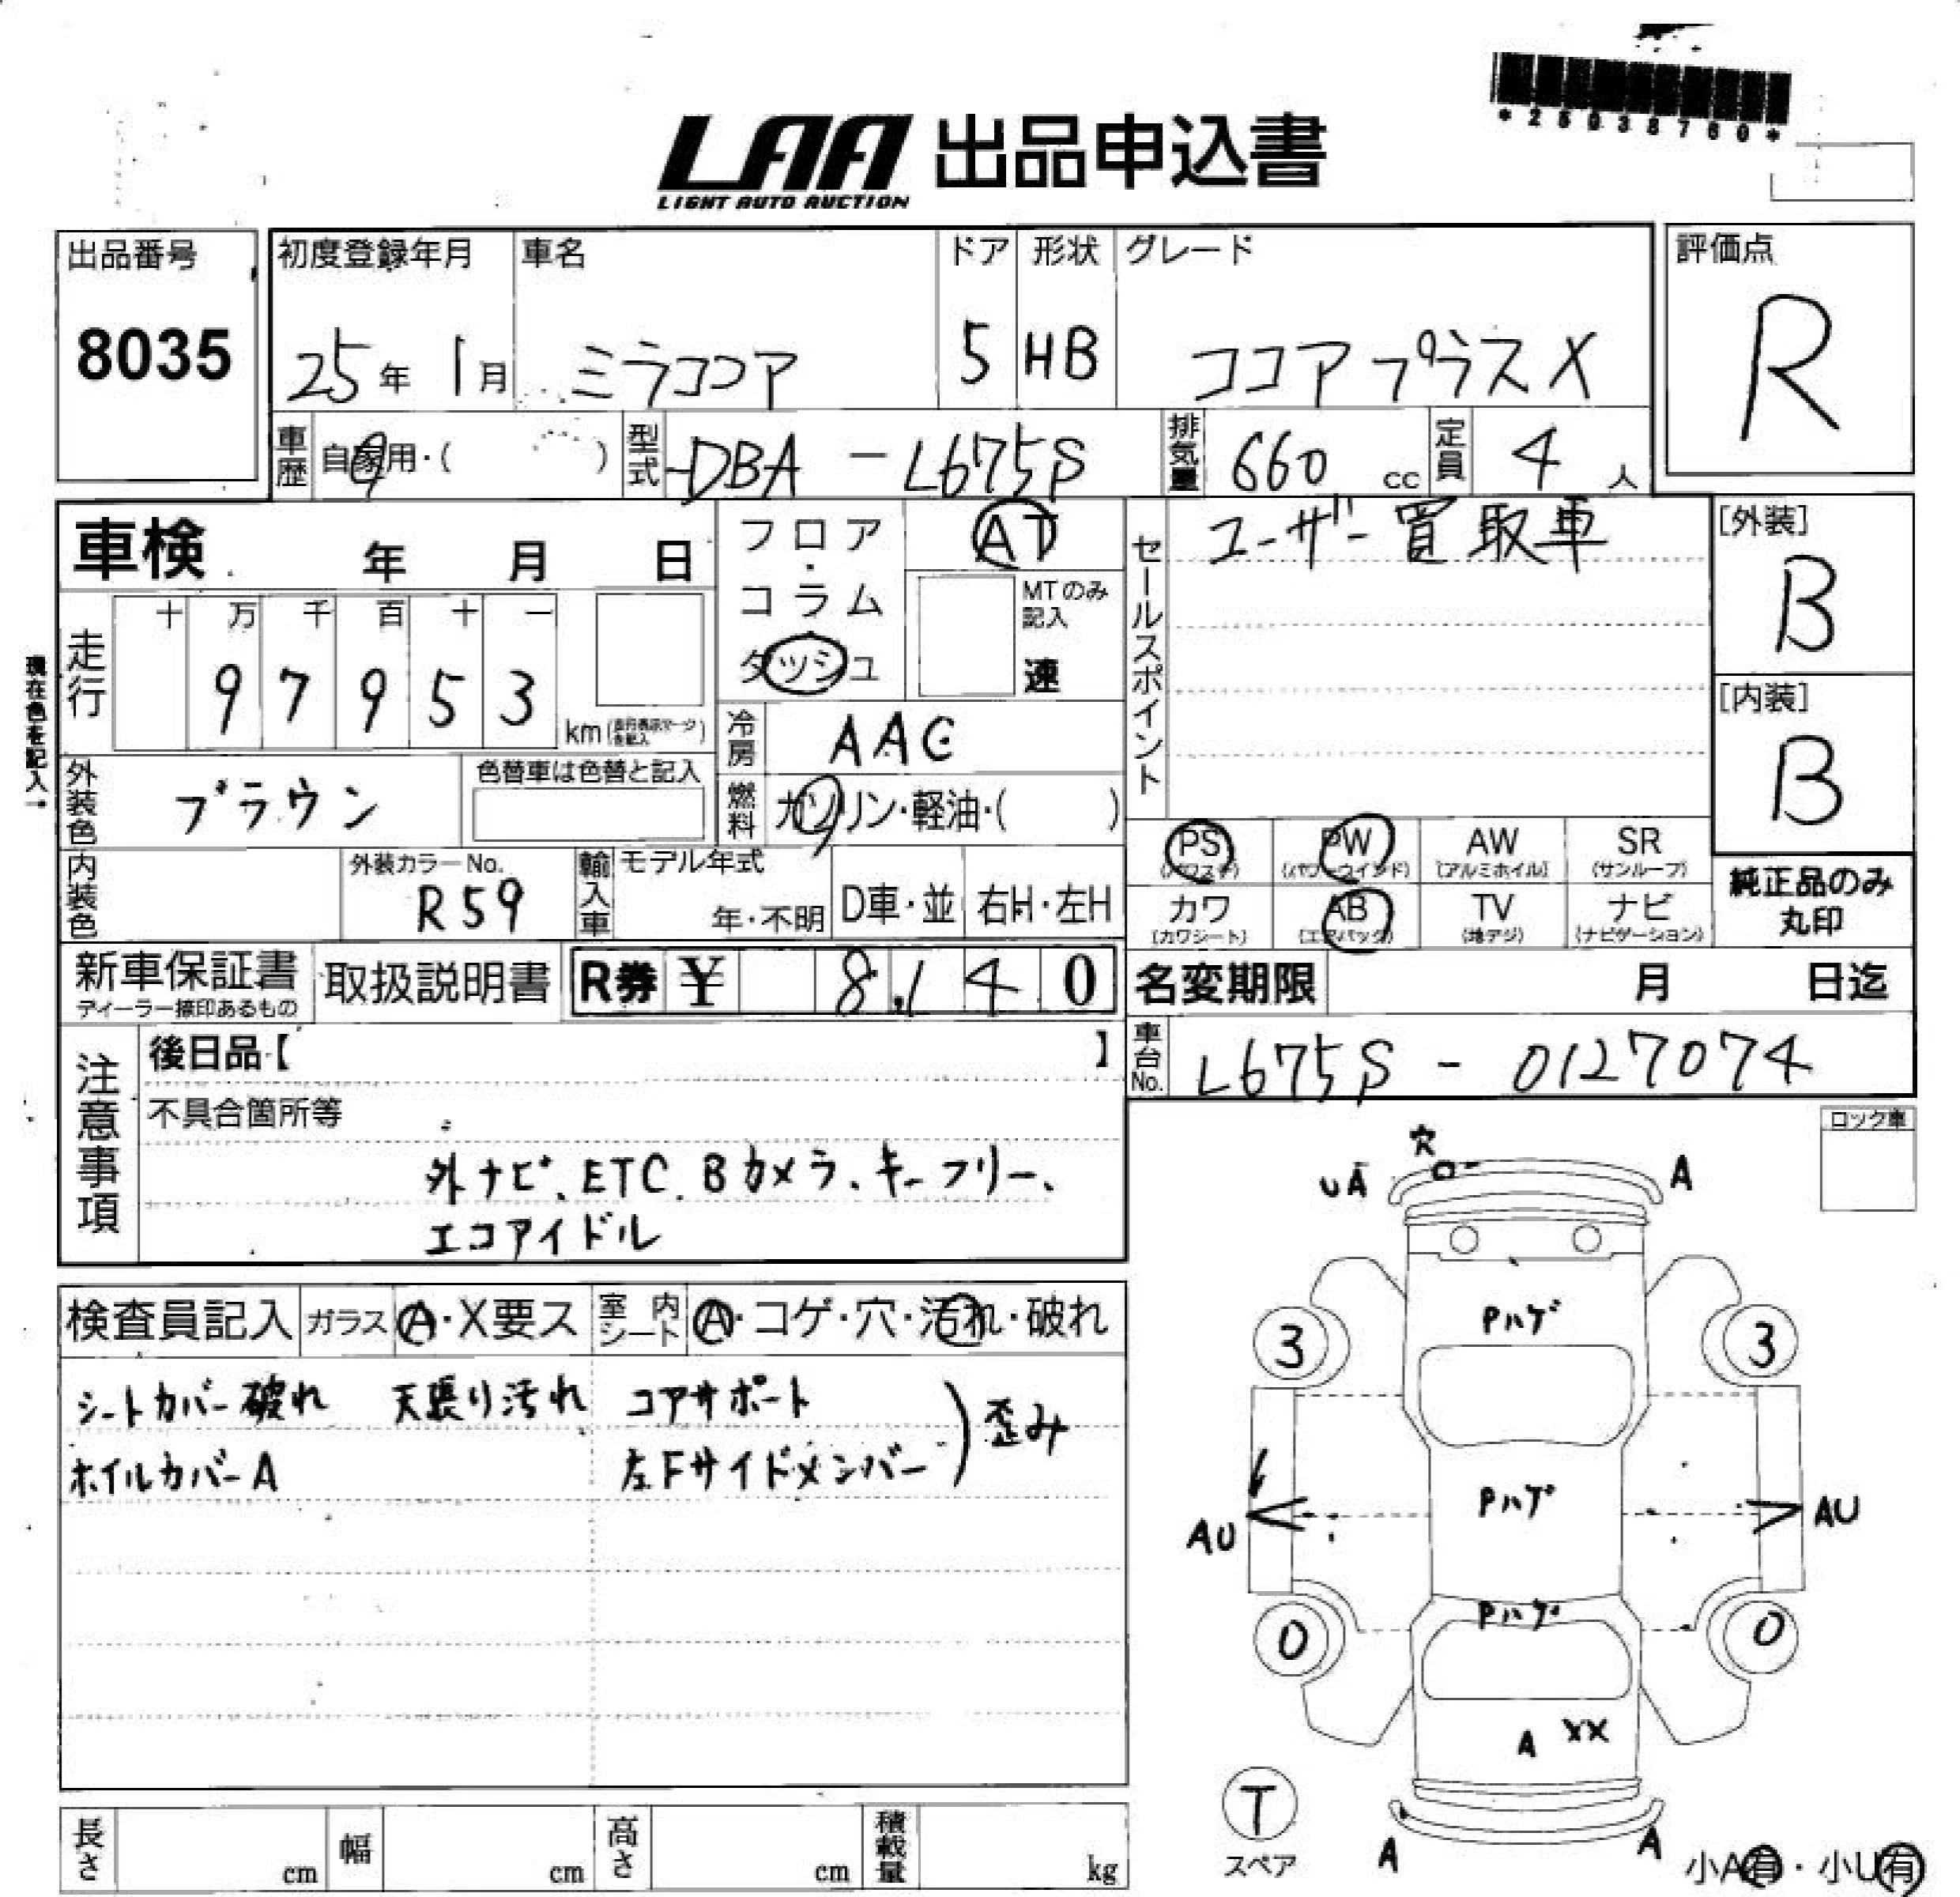 *25038760*
LAA 出品申込書
LIGHT AUTO AUCTION
出品番号
8035
初度登録年月
25年 1月
車名
ミラココア
ドア
5
形状
HB
グレード
ココアプラスX
評価点
R
車歴 自家用・( )
型式 DBA - L675S
排気量 660 cc
定員 4 人
車検 年 月 日
フロア・コラム
ダッシュ
AT
MTのみ
記入
速
セールスポイント
ユーザー買取車
[外装]
B
[内装]
B
現在色を記入→
走行
十 万 千 百 十 一
9 7 9 5 3
km
冷房 AAC
燃料 ガソリン・軽油・( )
外装色 ブラウン
色替車は色替と記入
内装色
外装カラーNo.
R59
輸入車
モデル年式
年・不明
D車・並
右H・左H
PS
(パワステ)
PW
(パワーウインド)
AW
(アルミホイル)
SR
(サンルーフ)
カワ
(カワシート)
AB
(エアバック)
TV
(地デジ)
ナビ
(ナビゲーション)
純正品のみ
丸印
新車保証書
ディーラー捺印あるもの
取扱説明書
R券 ¥ 8,140
名変期限 月 日迄
車台No. L675S - 0127074
注意事項
後日品【 】
不具合箇所等
外ナビ、ETC、Bカメラ、キーフリー、
エコアイドル
ロック車
検査員記入
ガラス A・X要ス
室内シート A・コゲ・穴・汚れ・破れ
シートカバー破れ 天張り汚れ コアサポート
ホイルカバーA 左Fサイドメンバー ) 歪み
穴
UA
A
Pハゲ
3
3
Pハゲ
AU
AU
Pハゲ
0
0
A XX
T
スペア
A
A
小A有・小U有
長さ cm
幅 cm
高さ cm
積載量 kg